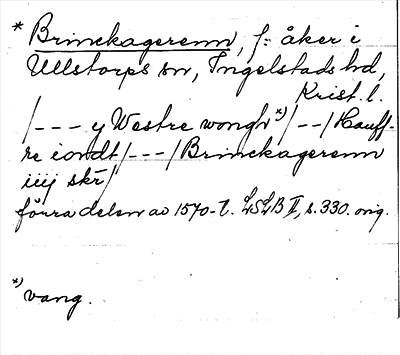 * Brinckagerenn, f: åker i
Ullstorps sn, Ingelstads hd,
Krist. l.
/--- y Westre wongh *)/--/Hauff-
re iondt/---/Brinckagerenn
iiij skr/
förra delen av 1570-t. LSLB II, s. 330. orig.
*) vang.